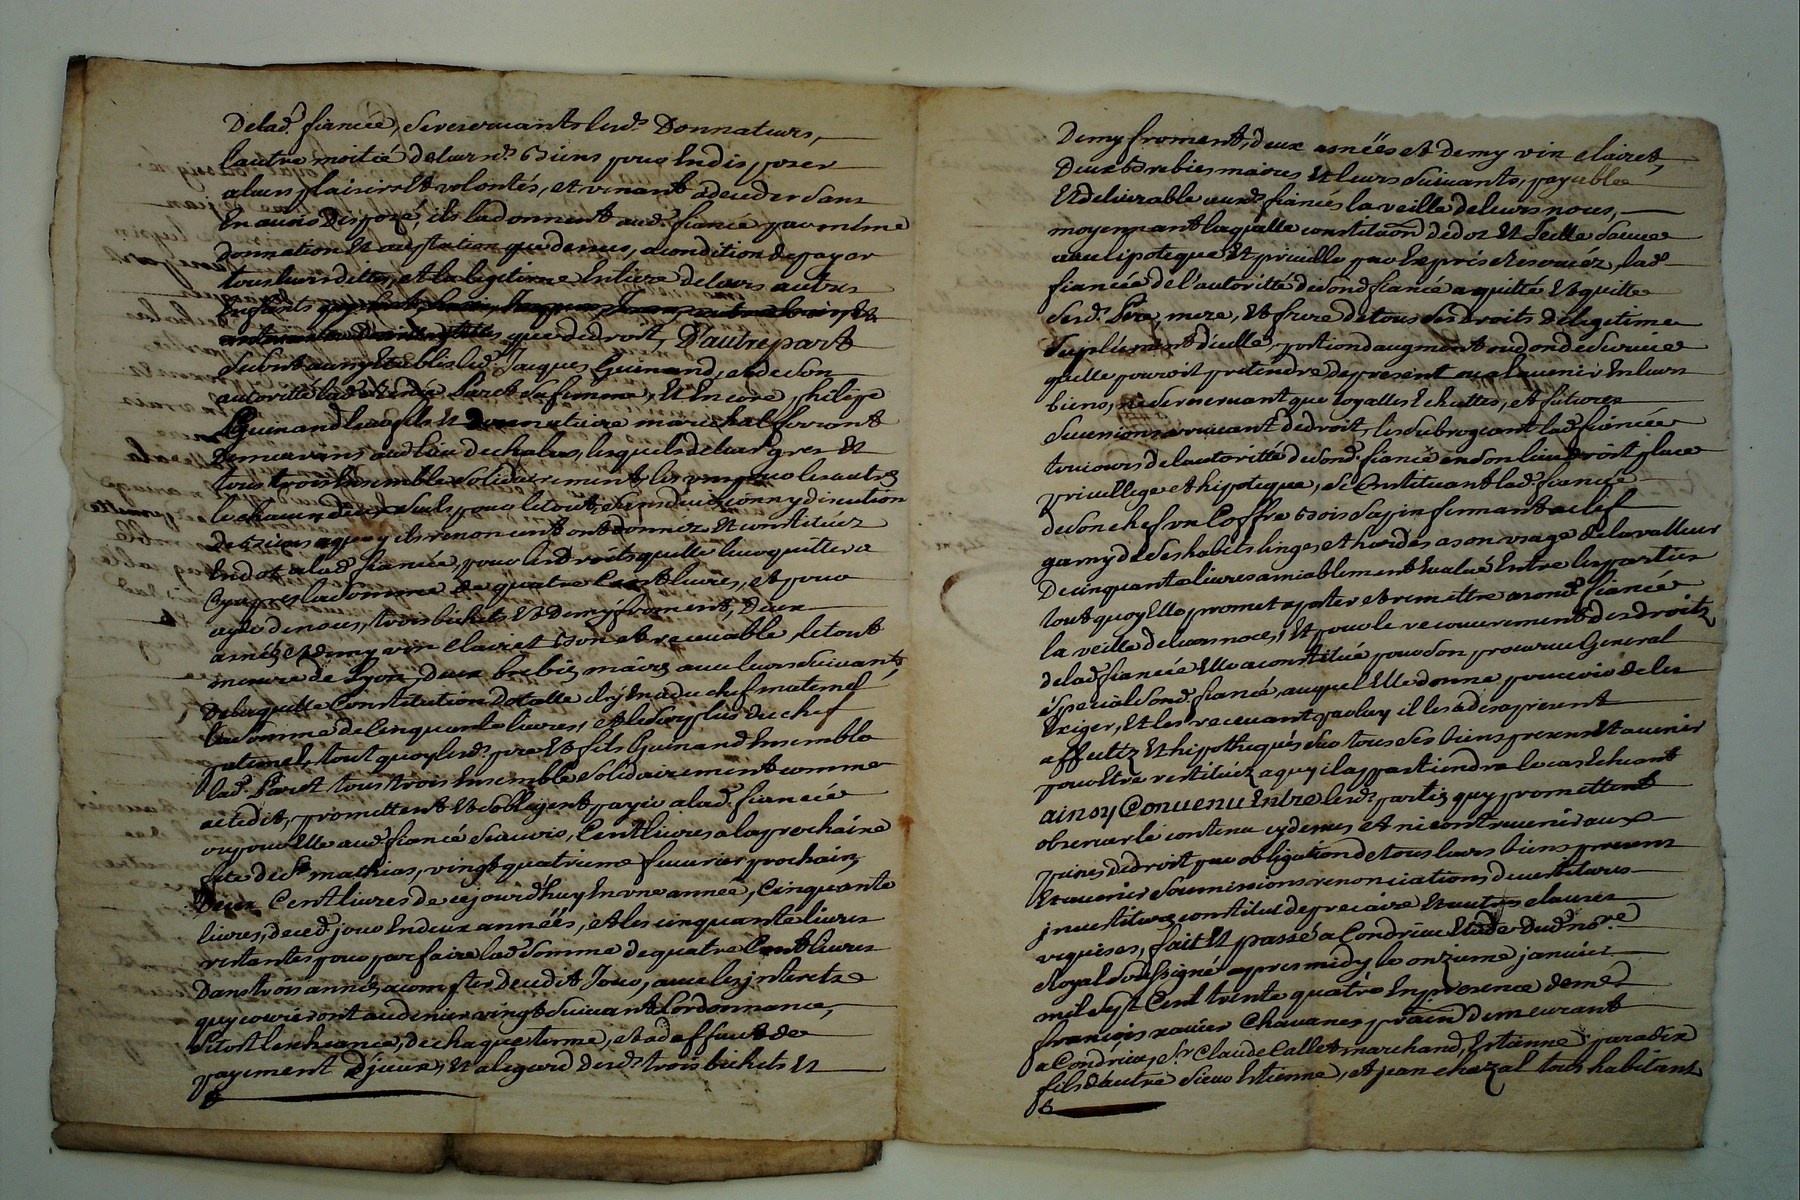 Delad. fiancée, se reservants lesd. Donnateurs,
l'autre moitié de leursd. Biens pour En disposer
a leurs plaisirs Et volontés, et venant a deceder sans
En avoir Disposé, ils la donnent aud. fiancé par même
Donnation Et acceptation que dessus, a condition de payer
tous leurs dittes, et la legitime Entiere de leurs autres
Enfants
que de droit, D'autre part
se sont aussy Etablis led. Jaques Guinand, et de son
autorité lad. Paret sa femme, Et Encore philipe
Guinand leur fils Et Donnataire marechal ferrant
Demeurants aud. lieu de chalas, lesquels de leur gres Et
tous trois Ensemble solidairement, les uns pour les autres
le chacun d'eux seul pour le tout, sans division ny discution
de Biens a quoy ils renoncent ont donnez Et constituéz
En dot a lad. fiancée, pour les Droits quelle leur quittera
Cy apres la somme de quatre Cent livres, et pour
ayde de noces, trois bichets Et Demy froment, Deux
asnées Et Demy vin clairet bon et recevable, le tout
mesure de Lyon, Deux brebis maires avec leurs suivants,
De laquelle Constitution dotalle il y En a du chef maternel
la somme de Cinquante livres, et le surplus du chef
paternel, tout quoy lesd. pere Et fils Guinand Ensemble
lad. Paret tous trois Ensemble solidairement comme
a été dit, promettent Et s'obligent payer a lad. fiancée
ou pour Elle aud. fiancé sçavoir, Cent livres a la prochaine
fete de St. mathias, vingt quatrieme fevrier prochain,
Deux Cent livres de ce jourd'huy En une année, Cinquante
livres, de ced. jour En deux années, et les cinquante livres
restantes pour parfaire lad. somme de quatre Cent livres
Dans trois années a compter De cedit Jour, avec les jnterets
quy courriront au denier vingt suivant l'ordonnance,
sitost l'escheance, de chaque terme, et a deffaut de
payement D'jceux, Et a legard desd. trois bichets Et
Demy froment, deux asnéés et Demy vin clairet,
Deux Brebies maires Et leurs suivants, payable
Et delivrable auxd. fiancés la veille de leurs noces,
moyennant laquelle constitution de dot Et Icelle sauve
avec ipoteque Et privillege par Expres Reservez, lad.
fiancée de l'autoritté de sond. fiancé a quitté Et quitte
sesd. Pere, mere, Et frere de tous ses droits de legetime
suplément d'icelle, portion d'augment ou don de survie
qu'elle pouroit pretendre De present ou a l'avenir En leurs
biens, ne se reservant que loyalles Echuttes, et futures
Successions arrivant De droit, les subrogeant lad. fiancée
toujours de l'autoritté de sond. fiancé en son lieu droit place
privillege et hipoteque, se Constituant lad. fiancée
de son chef un Coffre bois sapin fermant a clef
garny de ses habits linges et hardes a son usage de la valleur
De cinquante livres amiablement Evalué Entre les parties
tout quoy Elle promet aporter et remettre a sond. fiancé
la veille de leurs noces, Et pour le recouvrement des droits
de lad. fiancée Elle a constitué pour son procureur General
éspecial sond. fiancé, auquel Elle donne pouvoir de les
Exiger, Et les recevant par luy il les a des a present
affectéz Et hipothequés sur tous ses biens presens Et avenir
pour Etre restituéz a quy il appartiendra le cas Echeant
ainsy Convenu Entre lesd. parties quy promettent
observer le contenu cy dessus et ni contrevenir aux
peines de droit par obligation de tous leurs biens presens
Et avenir soumissions renonciations devestitures
jnvestiture constitut de precaire Et autres clauses
requises, fait Et passé a Condrieu Etude Dud. nore.
Royal soussigné apres midy le onzieme janvier
mil sept Cent trente quatre En presence de me.
françois xavier Chavanes, demeurant
a Condrieu, Sr. Claude Callet marchand, Estienne paradix
fils d'autre sieur Estienne, et jean chazal tous habitant